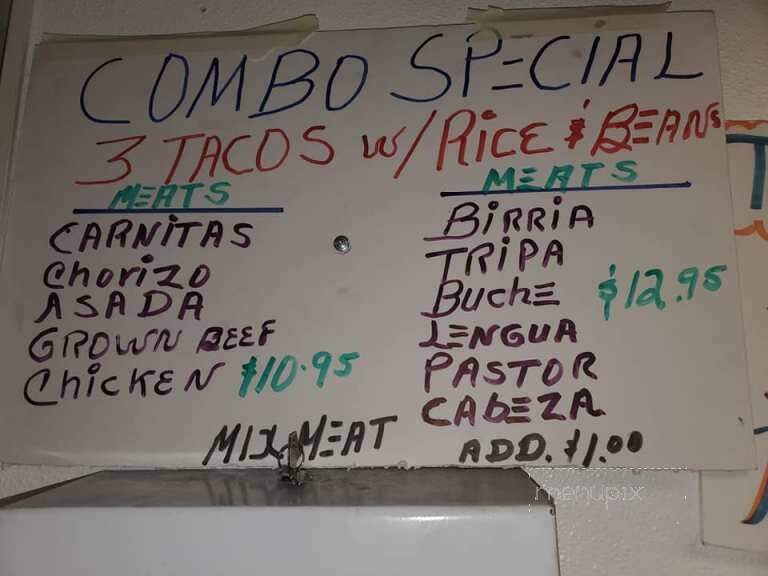 COMBO SPECIAL
3 TACOS w/ RICE & BEANS
MEATS
CARNITAS
Chorizo
ASADA
GROWN BEEF
ChickEN $10.95
MEATS
BiRRiA
TRiPA
BuchE $12.95
LENGUA
PASTOR
CABEZA
MIX MEAT ADD. $1.00
menupix